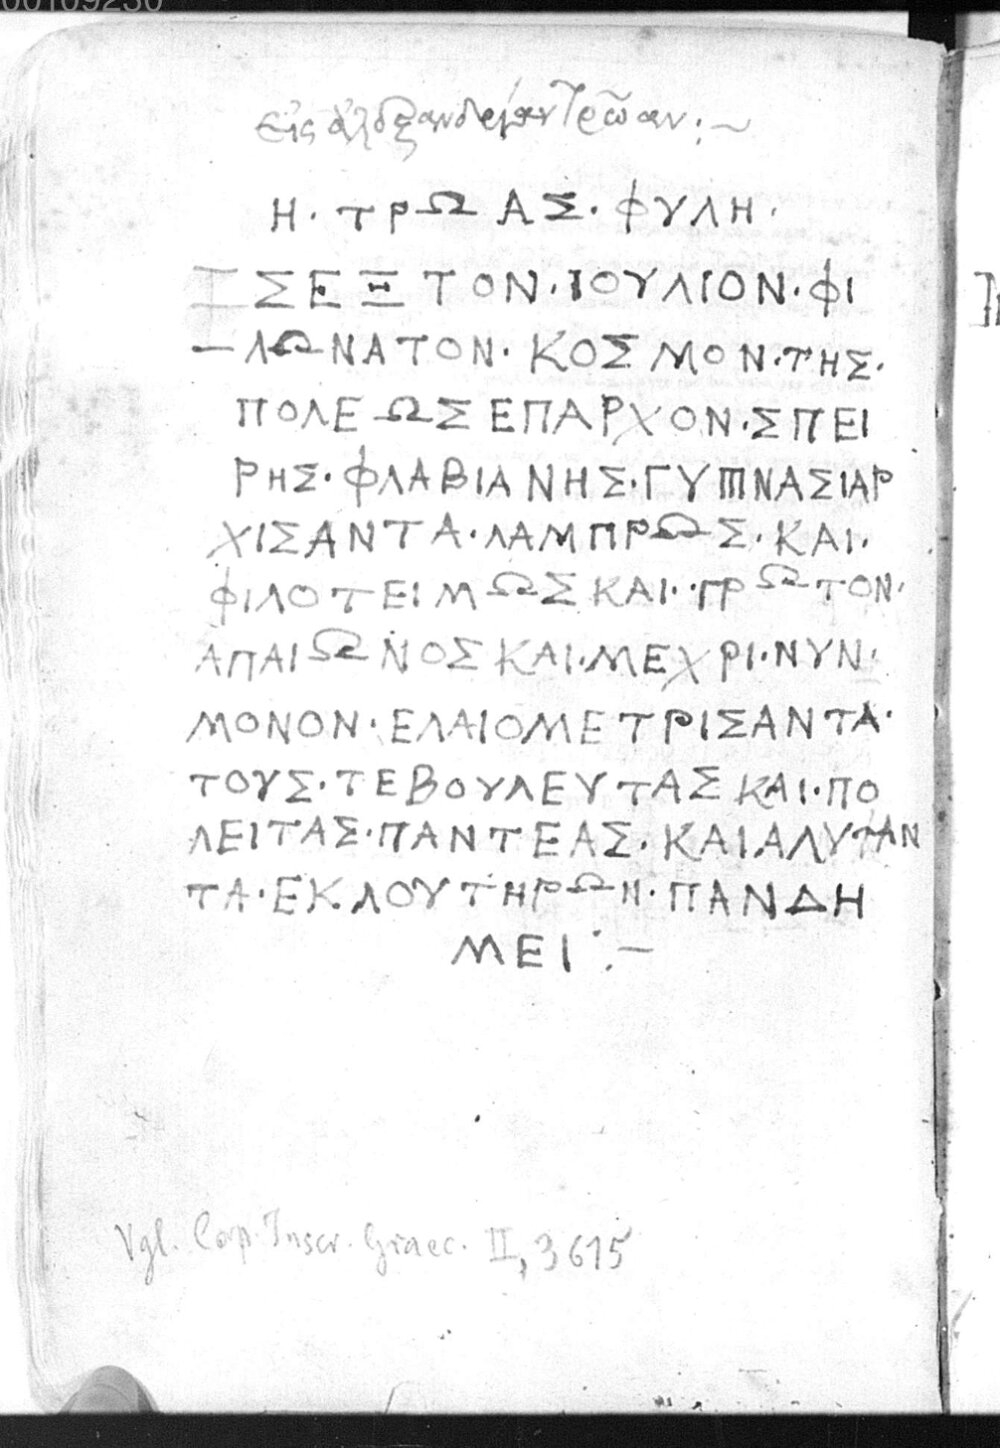 00109230
εἰς ἀλεξανδρείαν Τρῶαν :~
Η · ΤΡΩΑΣ · ΦΥΛΗ ·
ΣΕΞΤΟΝ · ΙΟΥΛΙΟΝ · ΦΙ
– ΛΩΝΑΤΟΝ · ΚΟΣΜΟΝ · ΤΗΣ ·
ΠΟΛΕΩΣ ΕΠΑΡΧΟΝ · ΣΠΕΙ
ΡΗΣ · ΦΛΑΒΙΑΝΗΣ · ΓΥΜΝΑΣΙΑΡ
ΧΙΣΑΝΤΑ · ΛΑΜΠΡΩΣ · ΚΑΙ ·
ΦΙΛΟΤΕΙΜΩΣ ΚΑΙ · ΠΡΩΤΟΝ ·
ΑΠΑΙΩΝΟΣ ΚΑΙ · ΜΕΧΡΙ · ΝΥΝ ·
ΜΟΝΟΝ · ΕΛΑΙΟΜΕΤΡΙΣΑΝΤΑ ·
ΤΟΥΣ · ΤΕ ΒΟΥΛΕΥΤΑΣ ΚΑΙ · ΠΟ
ΛΕΙΤΑΣ · ΠΑΝΤΕΑΣ · ΚΑΙ ΑΛΥΤΑΝ
ΤΑ · ΕΚ ΛΟΥΤΗΡΩΝ · ΠΑΝΔΗ
ΜΕΙ :–
Vgl. Corp. Inscr. Graec. II, 3615